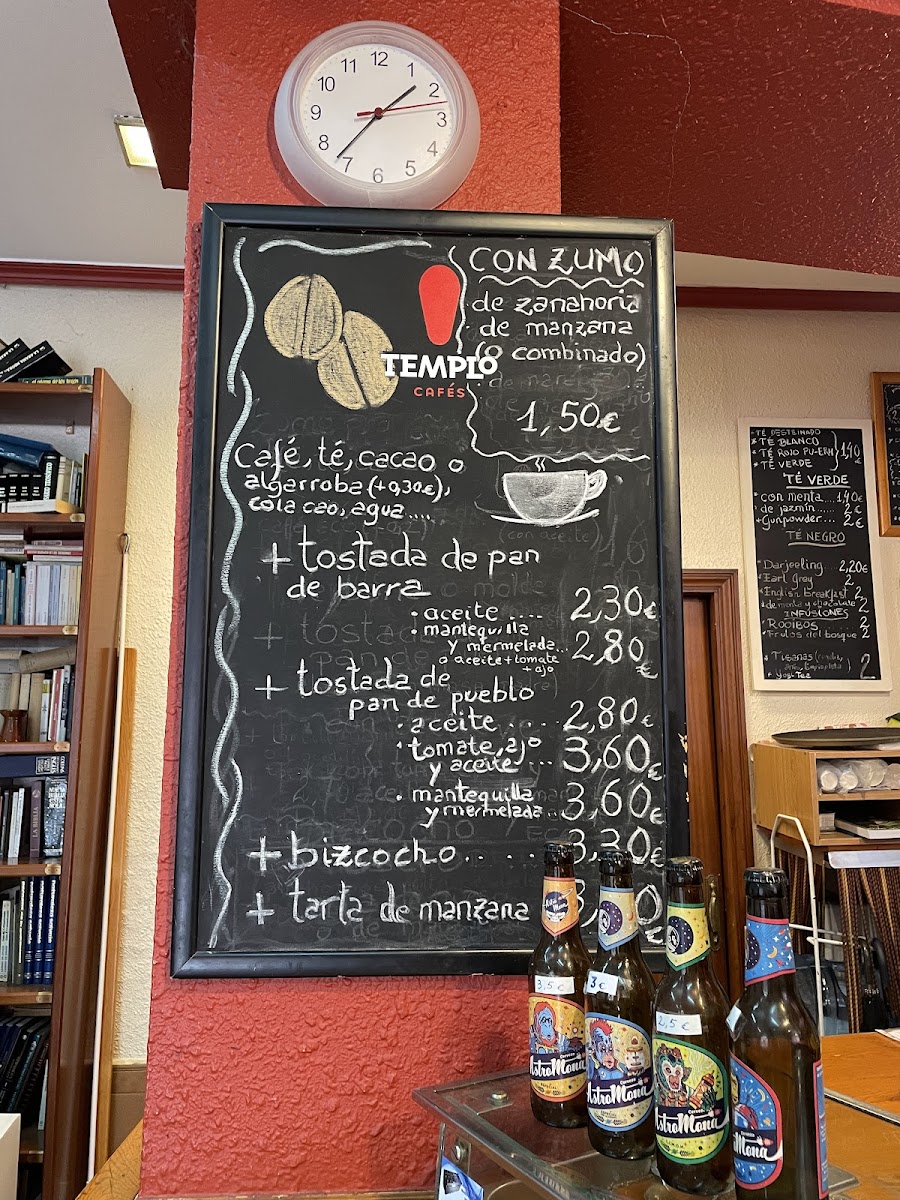 12
1
2
3
4
5
6
7
8
9
10
11
CON ZUMO
de zanahoria
de manzana
(o combinado)
1,50€
TEMPLO
CAFÉS
Café, té, cacao o
algarroba (+0,30€),
cola cao, agua....
+ tostada de pan
de barra
· aceite .... 2,30€
· mantequilla
y mermelada... 2,80€
o aceite + tomate
+ ajo
+ tostada de
pan de pueblo
· aceite ..... 2,80€
· tomate, ajo
y aceite ... 3,60€
· mantequilla
y mermelada... 3,60€
+ bizcocho...... 3,30€
+ tarta de manzana
TÉ DESTEINADO
* TÉ BLANCO
* TÉ ROJO PU-ERH
* TÉ VERDE
1,40€
TÉ VERDE
con menta.... 1,40€
de jazmín...... 2€
Gunpowder... 2€
TÉ NEGRO
Darjeeling... 2,20€
Earl Grey 2
English breakfast 2
de menta y chocolate 2
INFUSIONES
Rooibos ..... 2
Frutos del bosque 2
Tisanas
Yogi Tea
2
3,5€
3€
2,5€
Cerveza
AstroMona
Cerveza
AstroMona
Cerveza
AstroMona
LA BIBLIA